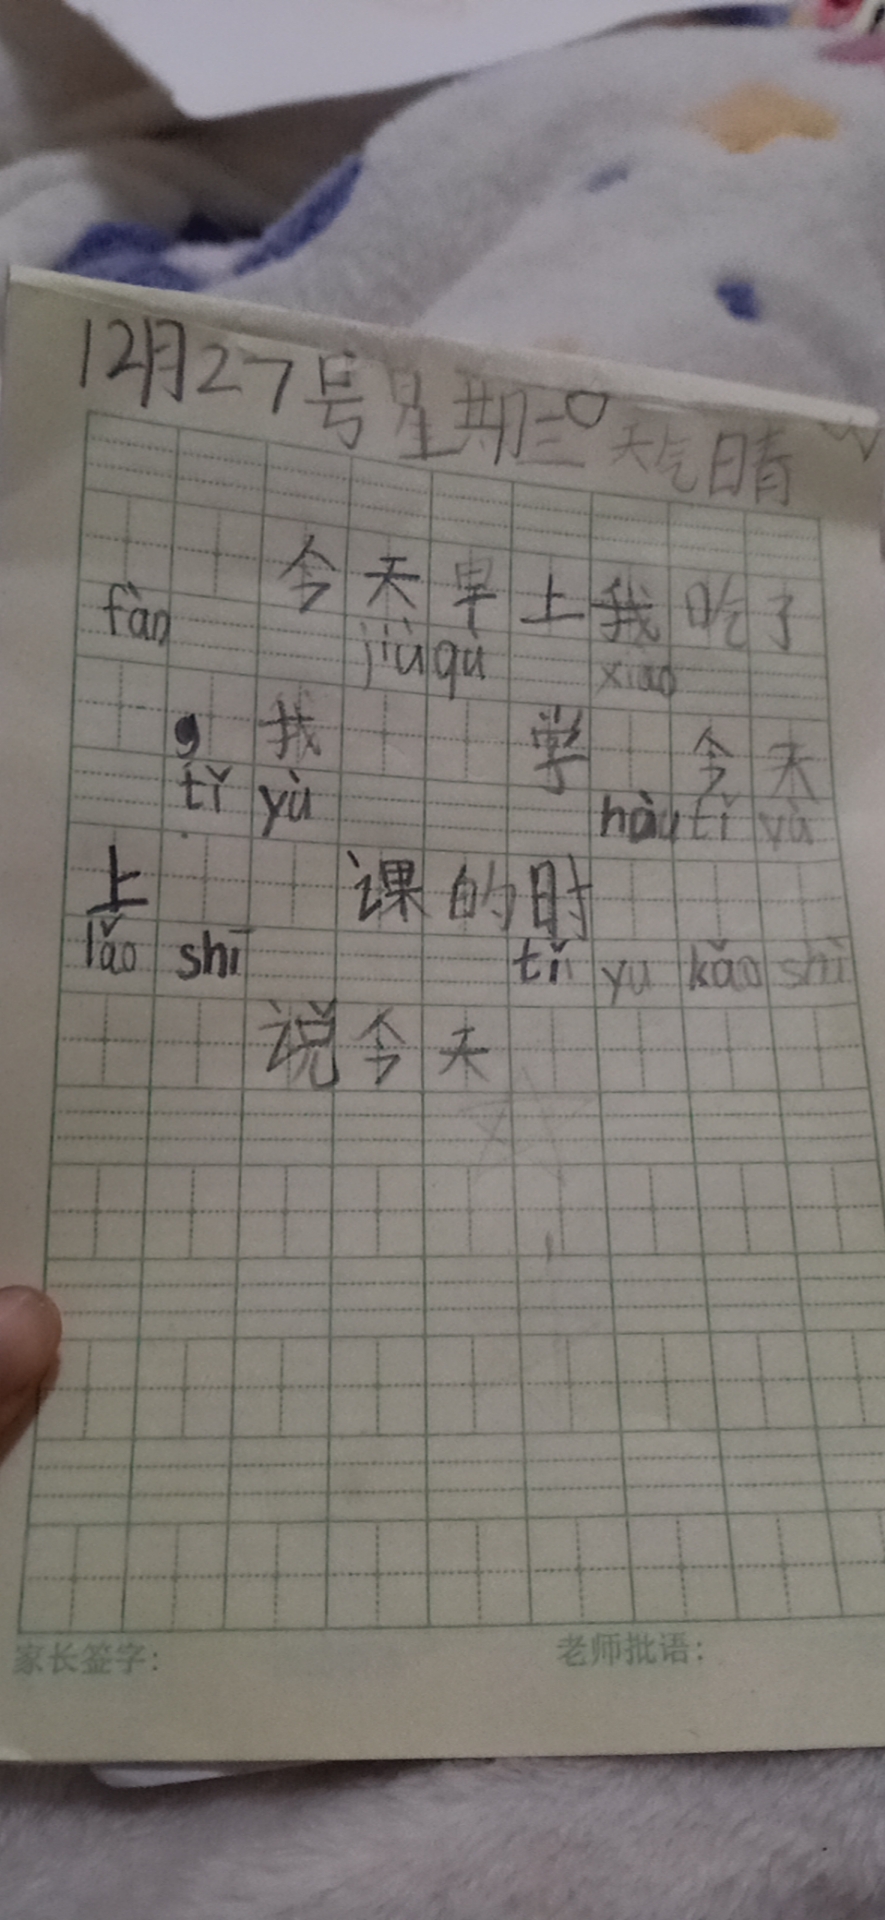 12月27号星期三 天气晴
今天早上我吃了
fàn jiù qù xiao
，我 学 今天
tǐ yù hòu tǐ yù
上 课的时
lǎo shī tǐ yu kǎo shì
说今天
家长签字： 老师批语：